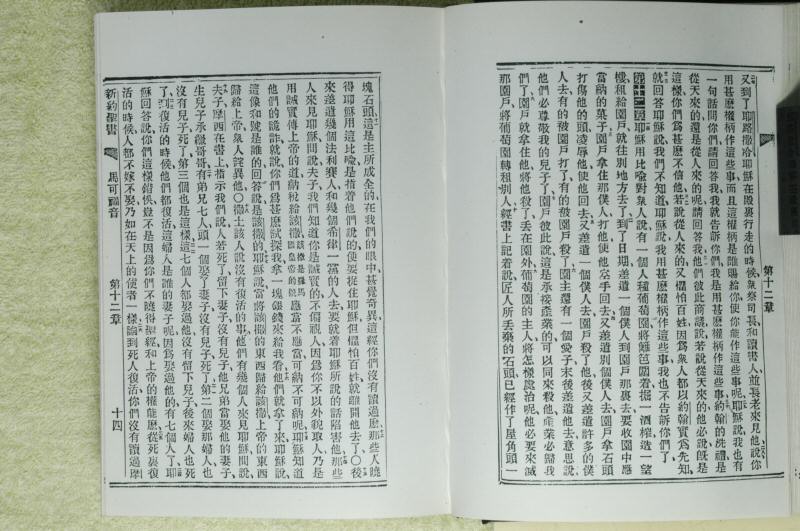 第十二章
又到了耶路撒冷耶穌在殿裏行走的時候衆祭司長和讀書人並長老來見他說你
用甚麽權柄作這些事而且這權柄是誰賜給你使你能作這些事呢耶穌說我也有
一句話問你們請回答我我就告訴你們我是用甚麽權柄作這些事約翰的洗禮是
從天來的還是從人來的呢請回答我他們彼此商議說若說從天來的他必說旣是
這樣你們爲甚麽不信他若說從人來的又懼怕百姓因爲衆人都以約翰實爲先知
就回答耶穌說我們不知道耶穌說我用甚麽權柄作這些事我也不告訴你們了
第十二章耶穌用比喩對衆人說有一個人種葡萄園將籬笆圍着掘一酒榨造一望
樓租給園戶就往別地方去了到了日期差遣一個僕人到園戶那裏去要收園中應
當納的菓子園戶就拿住那僕人打他使他空手回去又差遣別個僕人去園戶拿石頭
打傷他的頭凌辱他使他回去又差遣一個僕人去園戶殺了他後又差遣許多的僕
人去有的被園戶打了有的被園戶殺了園主還有一個愛子末後差遣他去意思說
他們必尊敬我的兒子了園戶彼此說這是承接產業的可以同來殺他產業必歸我
們了園戶就拿住他將他殺了丟在園外葡萄園的主人將怎樣處治呢他必要來滅
那園戶將葡萄園轉租別人經書上記着說匠人所丟棄的石頭已經作了屋角頭一
塊石頭這是主所成全的在我們的眼中甚覺奇異這經你們沒有讀過麽那些人曉
得耶穌用這比喩是指着他們說的便要捉住耶穌但懼怕百姓就離開他去了〇後
來差遣幾個法利賽人和幾個希律一黨的人去要就着耶穌所說的話陷害他那些
人來見耶穌問說夫子我們知道你是誠實的不偏視人因爲你不以外貌取人乃是
用誠實傳上帝的道納稅給該撒該撒是羅馬國皇帝的號應當不應當可納不可納呢耶穌知道
他們的詭詐就說你們爲甚麽試探我拿一塊銀錢來給我看他們就拿了來耶穌說
這像和號是誰的回答說是該撒的耶穌說當將該撒的東西歸給該撒上帝的東西
歸給上帝衆人詫異他〇撒土該人說沒有復活的事他們有幾個人來見耶穌問說
夫子摩西在書上指示我們說人若死了留下妻子沒有兒子他兄弟當娶他的妻子
生兒子承繼哥哥有弟兄七人頭一個娶了妻子沒有兒子死了第二個娶那婦人也
沒有兒子死了第三個也是這樣這七個人都娶過他沒有留下兒子後來婦人也死
了到復活的時候他們都復活這婦人是誰的妻子呢因爲娶過他的有七個人了耶
穌回答說你們這樣錯悞豈不是因爲你們不曉得聖經和上帝的權能麽從死裏復
活的時候人都不嫁不娶乃如在天上的使者一樣論到死人復活你們沒有讀過摩
新約聖書 馬可福音 第十二章 十四